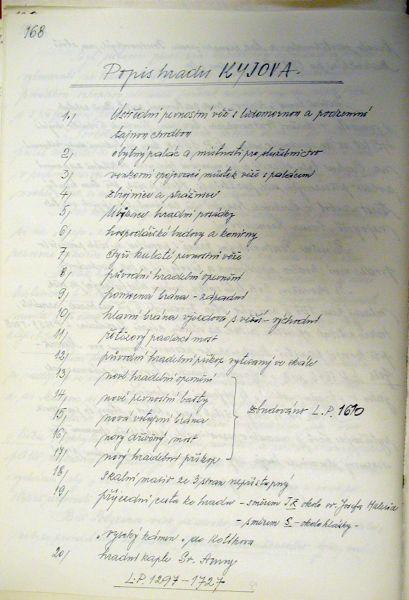 168
Popis hradu KYJOVA.
1./ Ústřední pevnostní věž s hladomornou a podzemní
tajnou chodbou
2./ obytný palác a místnosti pro služebnictvo
3./ venkovní spojovací můstek věže s palácem
4./ zbrojnice a strážnice
5./ hradní posádky
6./ hospodářské budovy a komory
7./ čtyři kulaté pevnostní věže
8./ původní hradební opevnění
9./ brána - západní
10./ hlavní brána vjezdová s věží - východní
11./ řetězový padací most
12./ původní hradební příkop vytesaný ve skále
13./ nové hradební opevnění
14./ nové pevnostní bašty
15./ nová vstupní brána
16./ nový dřevěný most
17./ nový hradební příkop
zbudováno L.P. 1610
18./ Skalní masiv ze 3 stran nepřístupný
19./ příjezdní cesta ke hradu - směrem okolo sv. Josefa
- směrem S - okolo
"vysoký kámen" do
20./ hradní kaple Sv. Anny
L.P. 1297 - 1727